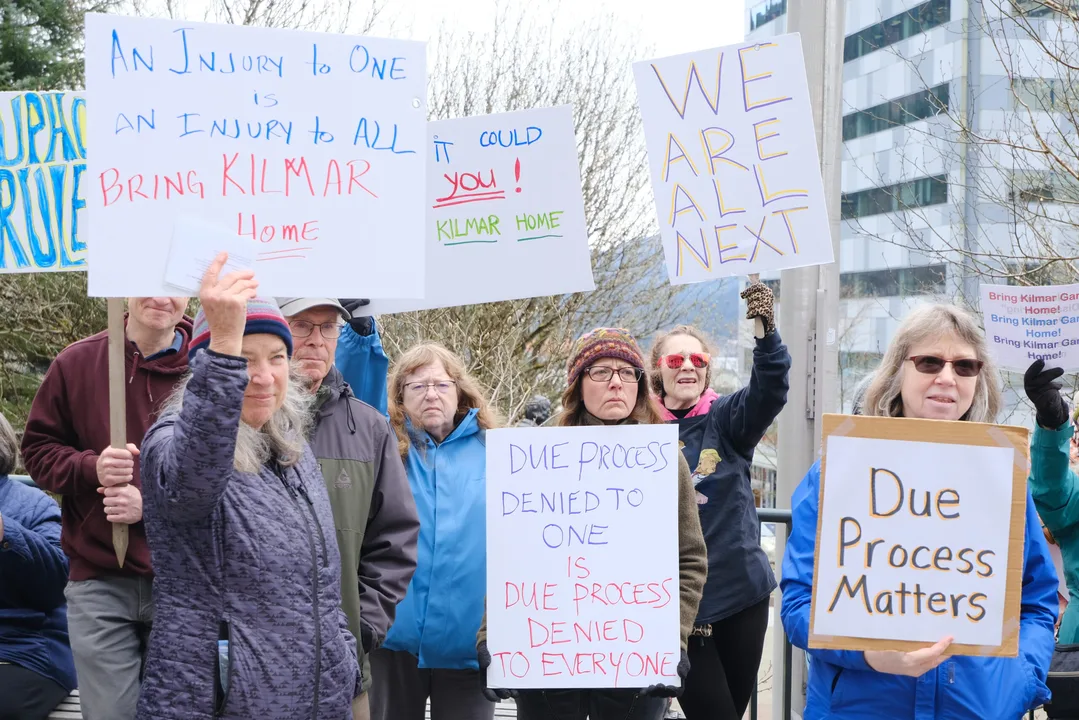 AN INJURY to ONE
is
AN INJURY to ALL
BRING KILMAR
Home
RULE
iT COULD
YOU!
KILMAR HOME
WE
ARE
ALL
NEXT
Bring Kilmar
Home!
Bring Kilmar
Home!
Bring Kilmar
Home!
DUE PROCESS
DENIED TO
ONE
IS
DUE PROCESS
DENIED
TO EVERYONE
Due
Process
Matters